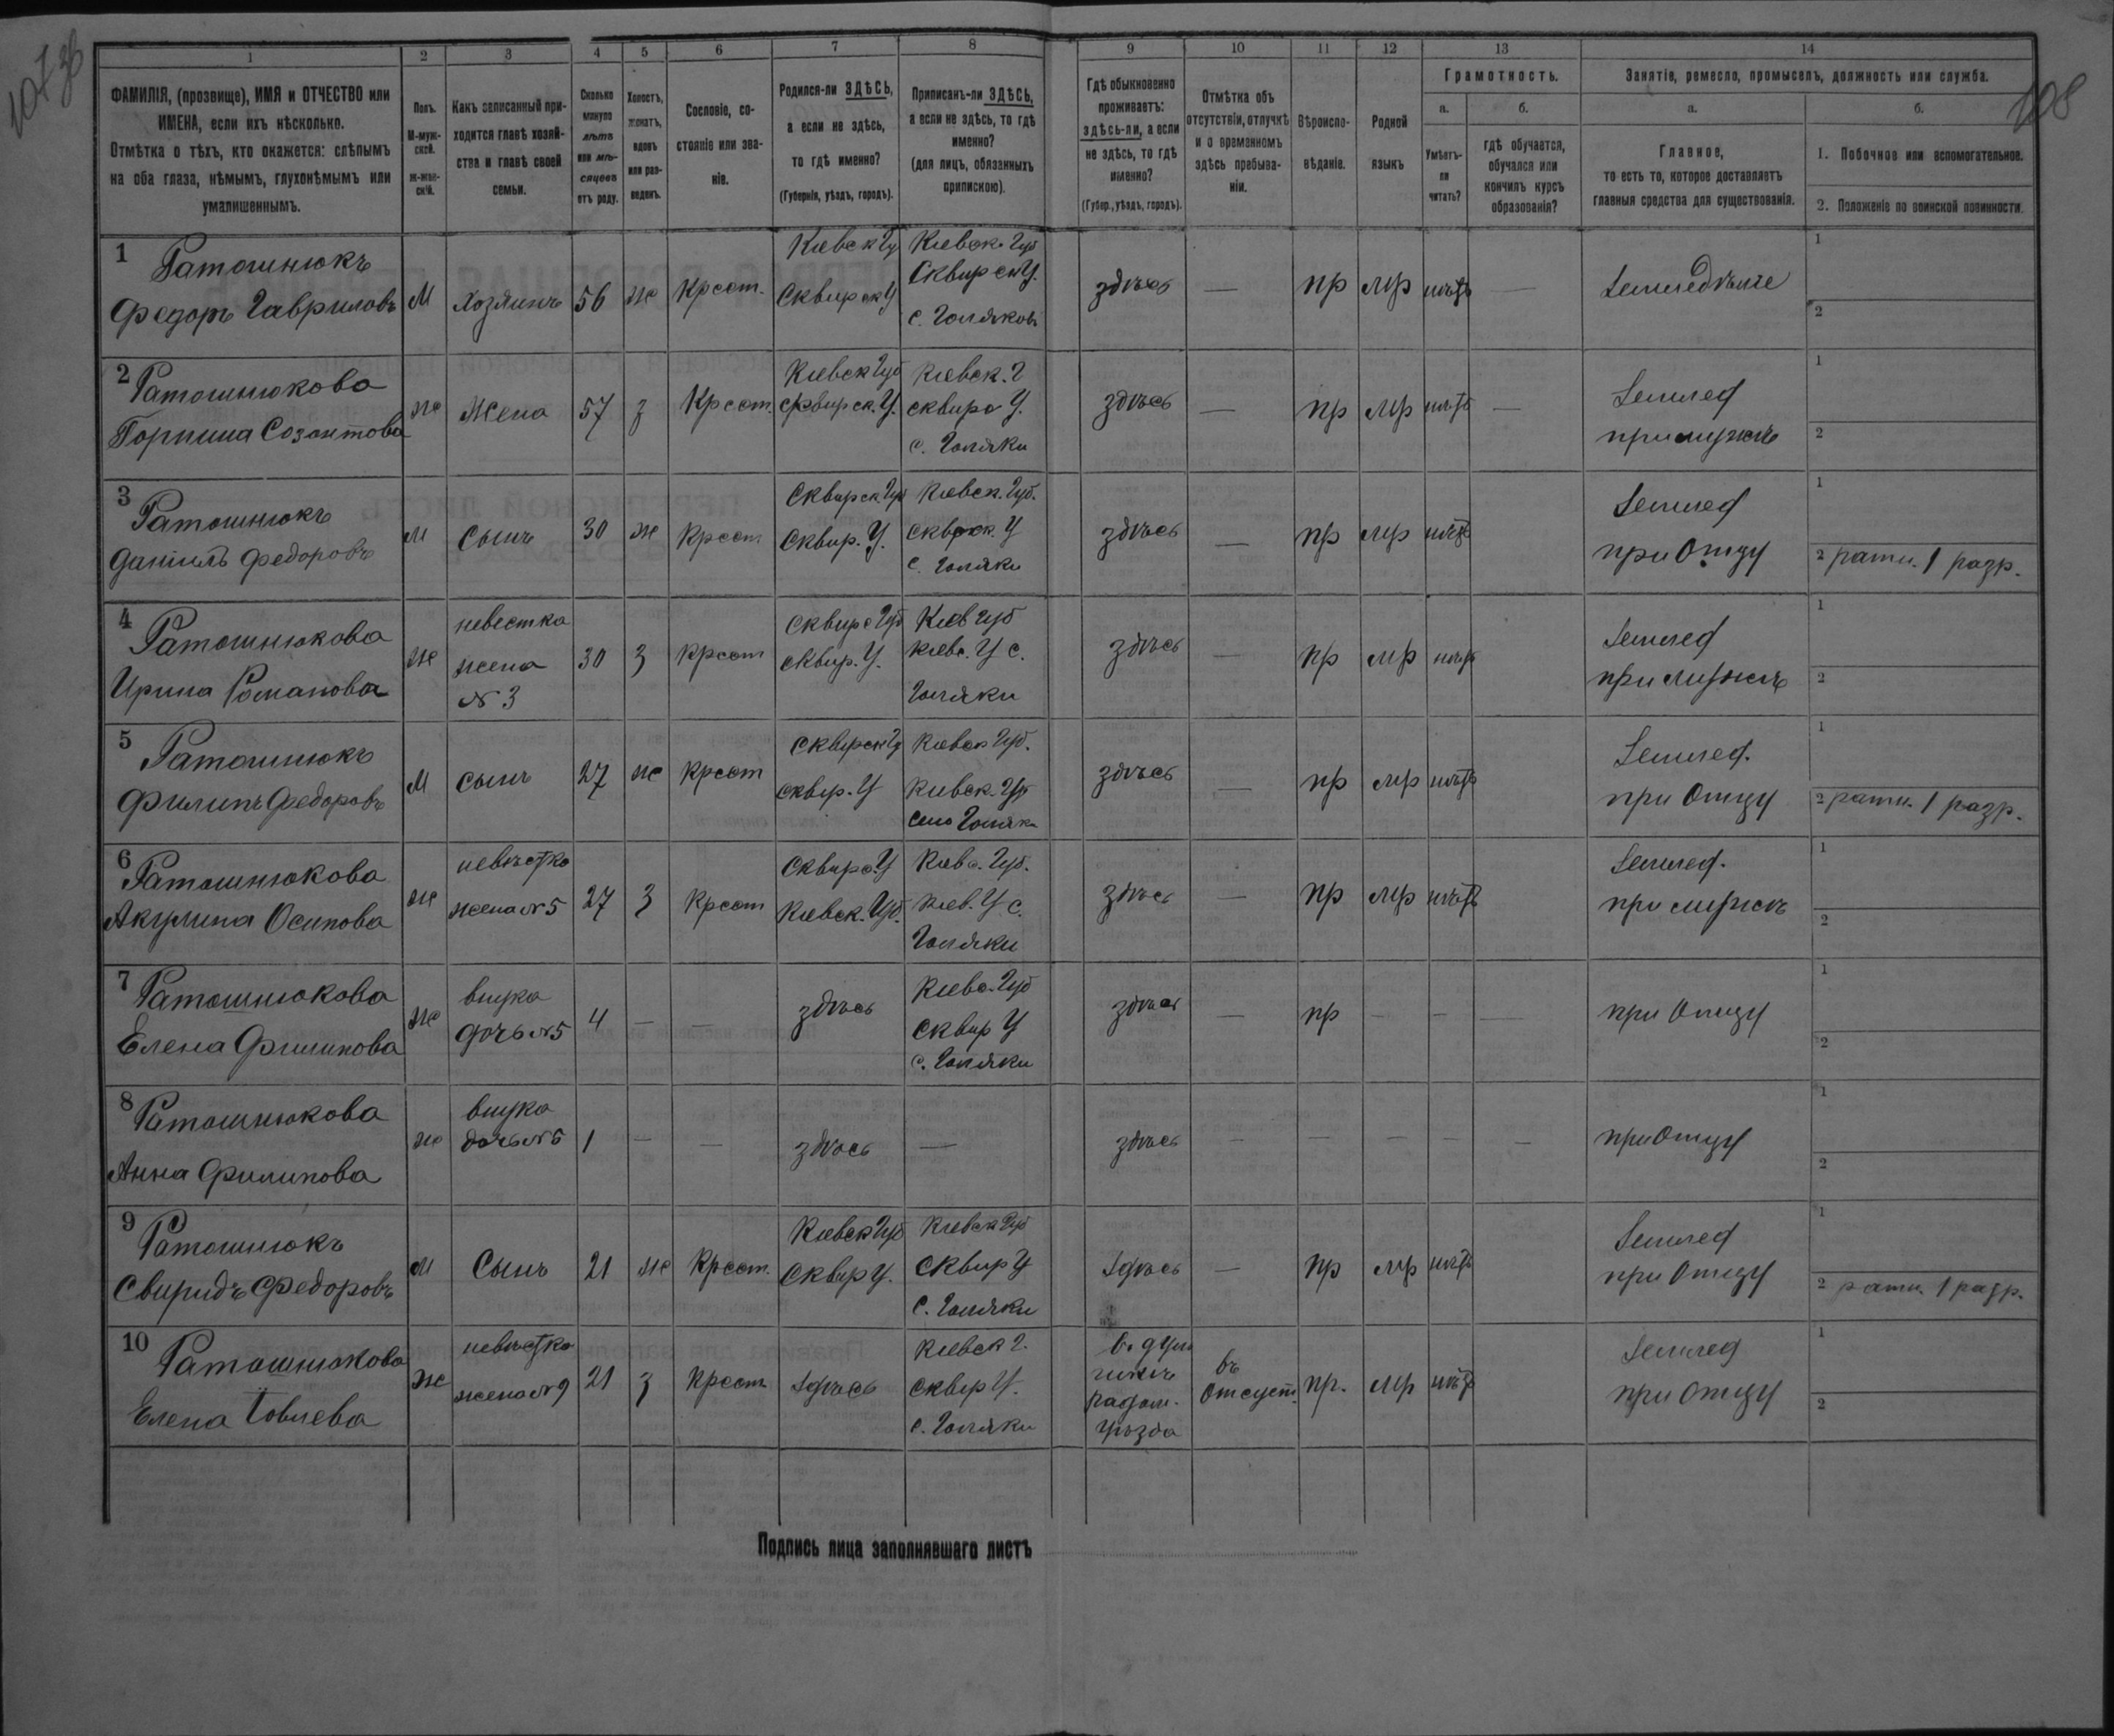 107 об
108
1 2 3 4 5 6 7 8 9 10 11 12 13 14
ФАМИЛІЯ, (прозвище), ИМЯ и ОТЧЕСТВО или
ИМЕНА, если ихъ нѣсколько.
Отмѣтка о тѣхъ, кто окажется: слѣпымъ
на оба глаза, нѣмымъ, глухонѣмымъ или
умалишеннымъ.
Полъ.
М-муж-
ской.
ж-жен-
скій.
Какъ записанный при-
ходится главѣ хозяй-
ства и главѣ своей
семьи.
Сколько
минуло
лѣтъ
или мѣ-
сяцевъ
отъ роду.
Холостъ,
женатъ,
вдовъ
или раз-
веденъ.
Сословіе, со-
стояніе или зва-
ніе.
Родился-ли ЗДѢСЬ,
а если не здѣсь,
то гдѣ именно?
(Губернія, уѣздъ, городъ).
Приписанъ-ли ЗДѢСЬ,
а если не здѣсь, то гдѣ
именно?
(для лицъ, обязанныхъ
припискою).
Гдѣ обыкновенно
проживаетъ:
здѣсь-ли, а если
не здѣсь, то гдѣ
именно?
(Губер., уѣздъ, городъ).
Отмѣтка объ
отсутствіи, отлучкѣ
и о временномъ
здѣсь пребыва-
ніи.
Вѣроиспо-
вѣданіе.
Родной
языкъ
Грамотность.
а.
Умѣетъ-
ли
читать?
б.
гдѣ обучается,
обучался или
кончилъ курсъ
образованія?
Занятіе, ремесло, промыселъ, должность или служба.
а.
Главное,
то есть то, которое доставляетъ
главныя средства для существованія.
б.
1. Побочное или вспомогательное.
2. Положеніе по воинской повинности.
1
Ратошнюкъ
Федоръ Гавриловъ
М
Хозяинъ
56
ж
Крест.
Кіевск Гу
Сквирск У
Кіевск. Губ
Сквирск У.
с. Голяковъ
здѣсь
—
пр
мр
нѣтъ
—
Земледѣліе
1
2
2
Ратошнюкова
Горпина Созонтова
ж
Жена
57
з
Крест.
Кіевск Губ
Сквирск. У.
Кіевск. Г
сквирс У.
с. Голяки
здѣсь
—
пр
мр
нѣтъ
—
Землед
при мужѣ
1
2
3
Ратошнюкъ
Даніилъ Федоровъ
М
Сынъ
30
ж
Крест
Сквирск. Губ
Сквир. У.
Кіевск. Губ.
сквирск. У
с. Голяки
здѣсь
—
пр
мр
нѣтъ
Землед
при Отцу
1
2 ратн. 1 разр.
4
Ратошнюкова
Ирина Романова
ж
невестка
жена
№ 3
30
з
крест
Сквирс Губ
сквир. У.
Кіев Губ
кіевс. У с.
Голяки
здѣсь
—
пр
мр
нѣтъ
Землед
при мужѣ
1
2
5
Ратошнюкъ
Филипъ Федоровъ
М
сынъ
27
ж
крест
сквирск Гу
сквир. У
Кіевск Губ.
Кіевск. Уѣ
село Голяки
здѣсь
—
пр
мр
нѣтъ
Землед.
при Отцу
1
2 ратн. 1 разр.
6
Ратошнюкова
Акулина Осипова
ж
невѣстка
жена №5
27
з
Крест
Сквирс. У
Кіевск. Губ.
Кіевс. Губ.
кіев. У с.
Голяки
здѣсь
—
пр
мр
нѣтъ
Землед.
при мужѣ
1
2
7
Ратошнюкова
Елена Филипова
ж
внука
дочь №5
4
—
—
здѣсь
Кіевс. Губ
сквир У
с. Голяки
здѣсь
—
пр
—
—
—
при Отцу
1
2
8
Ратошнюкова
Анна Филипова
ж
внука
дочь №5
1
—
—
здѣсь
—
здѣсь
—
—
—
—
—
при Отцу
1
2
9
Ратошнюкъ
Свиридъ Федоровъ
М
Сынъ
21
ж
Крест.
Кіевск Губ
Сквир У.
Кіевск Губ
Сквир У
с. Голяки
Здѣсь
—
пр
мр
нѣтъ
Землед
при Отцу
1
2 ратн. 1 разр.
10
Ратошнюкова
Елена Іовлева
ж
невѣстка
жена №9
21
з
крест
Здѣсь
Кіевск Г.
сквир У.
с. Голяки
Радом.
Уѣзда
въ
Отсутст.
пр.
мр
нѣтъ
Землед
при отцу
1
2
Подпись лица заполнявшаго листъ